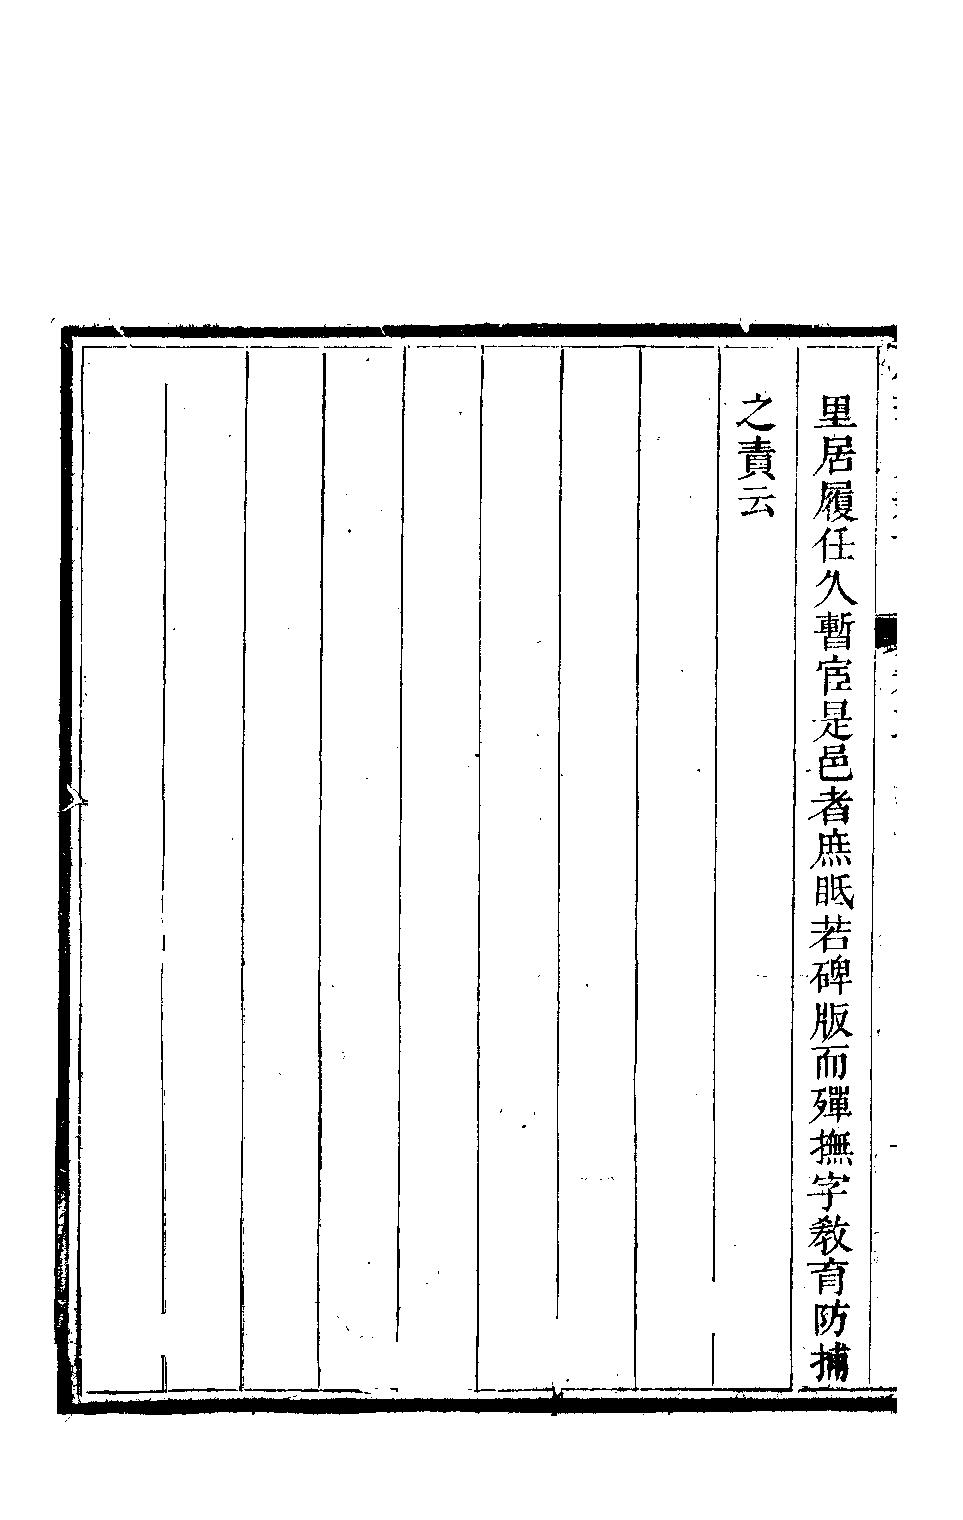 里居履任久暫宦是邑者庶眂若碑版而殫撫字教育防捕
之責云